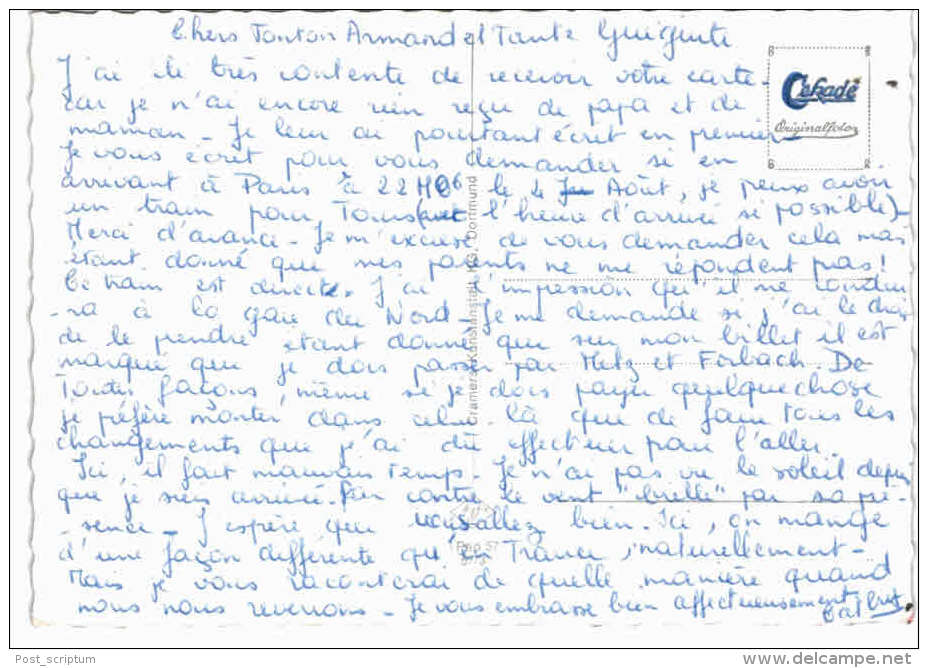 Chers Tonton Armand et Tante Guiguite
J'ai été très contente de recevoir votre carte -
car je n'ai encore rien reçu de papa et de
maman - Je leur ai pourtant écrit en premier
Je vous écris pour vous demander si en
arrivant à Paris à 22H06 le 4 Août, je peux avoir
un train pour Tours (avec l'heure d'arrivée si possible) -
Merci d'avance - Je m'excuse de vous demander cela mais
étant donné que mes parents ne me répondent pas !
Ce train est direct. J'ai l'impression qu'il me condui
-ra à la gare du Nord - Je me demande si j'ai le droit
de le prendre étant donné que sur mon billet il est
marqué que je dois passer par Metz et Forbach. De
toutes façons, même si je dois payer quelque chose
je préfère monter dans celui-là que de faire tous les
changements que j'ai dû effectuer pour l'aller.
Ici, il fait mauvais temps - Je n'ai pas vu le soleil depuis
que je suis arrivée. Par contre le vent "brille" par sa pré-
-sence - J'espère que vous allez bien. Ici, on mange
d'une façon différente qu'en France, naturellement -
Mais je vous raconterai de quelle manière quand
nous nous reverrons - Je vous embrasse bien affectueusement
Cekadé
Originalfoto
Cramers Kunstanstalt KG, Dortmund
Post_scriptum
www.delcampe.net